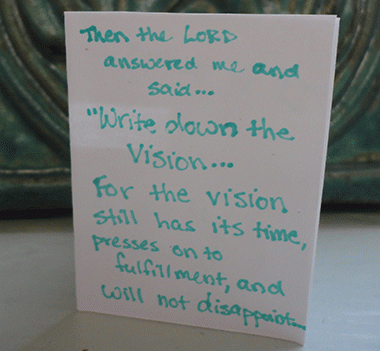 Then the LORD
answered me and
said...
"Write down the
Vision...
For the vision
still has its time,
presses on to
fulfillment, and
will not disappoint...